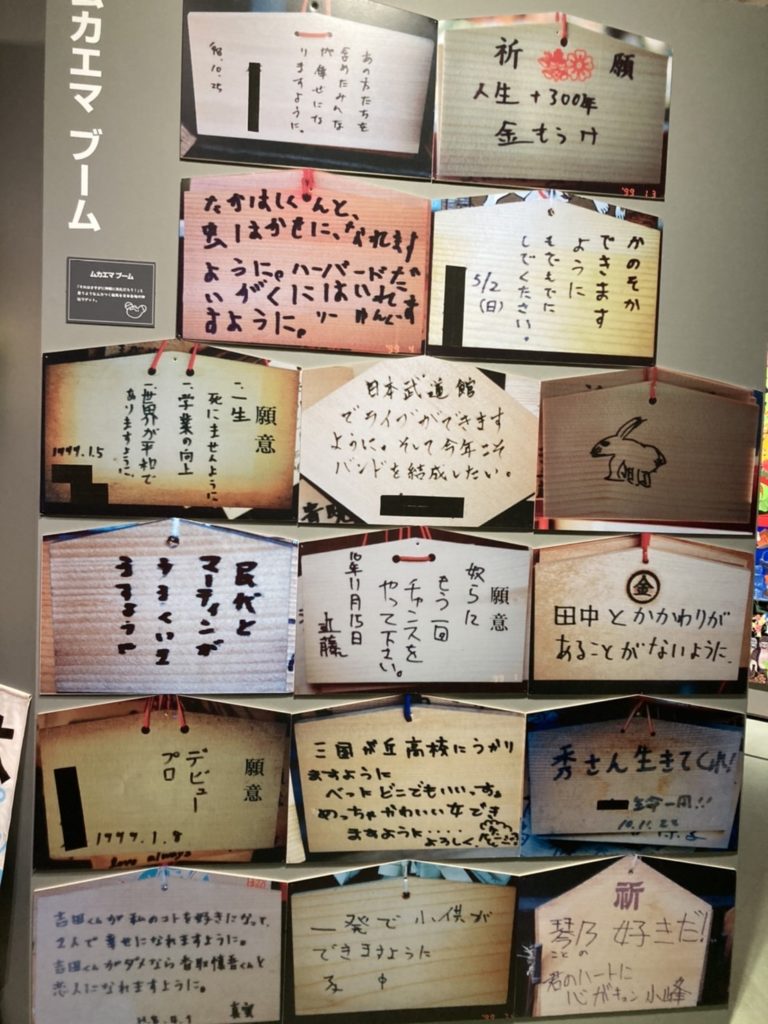 ムカエマ ブーム
あの方たちを
含めたみんな
が幸せにな
りますように。
98.10.25
祈願
人生+300年
金もうけ
'99 1.3
たかはしくんと、
虫はかせに、なれます
ように。ハーバードだ
いがくにはいれす
すように。
かのそか
できます
ように
もてもてに
してください。
5/2
(日)
ムカエマ ブーム
願意
一、一生
死にませんように
一、学業の向上
一、世界が平和で
ありますように。
1999.1.5
日本武道館
でライブができます
ように。そして今年こそ
バンドを結成したい。
民代と
マーティンが
うまくいき
ますよう
願意
奴らに
もう一回
チャンスを
やって下さい。
10年11月15日
近藤
金
田中とかかわりが
あることがないように。
願意
デビュー
プロ
1999.1.8
love always
三国が丘高校にうかり
ますように
ベットどこでもいいっす。
めっちゃかわいい女でき
ますように・・・・
よろしく
秀さん生きてくれ!
10.11.22
吉田くんが私のコトを好きになって、
2人で幸せになれますように。
吉田くんがダメなら香取慎吾くんと
恋人になれますように。
一発で小供が
できますように
祈
琴乃 好きだ!
ことの
君のハートに
心がキュン 小峰